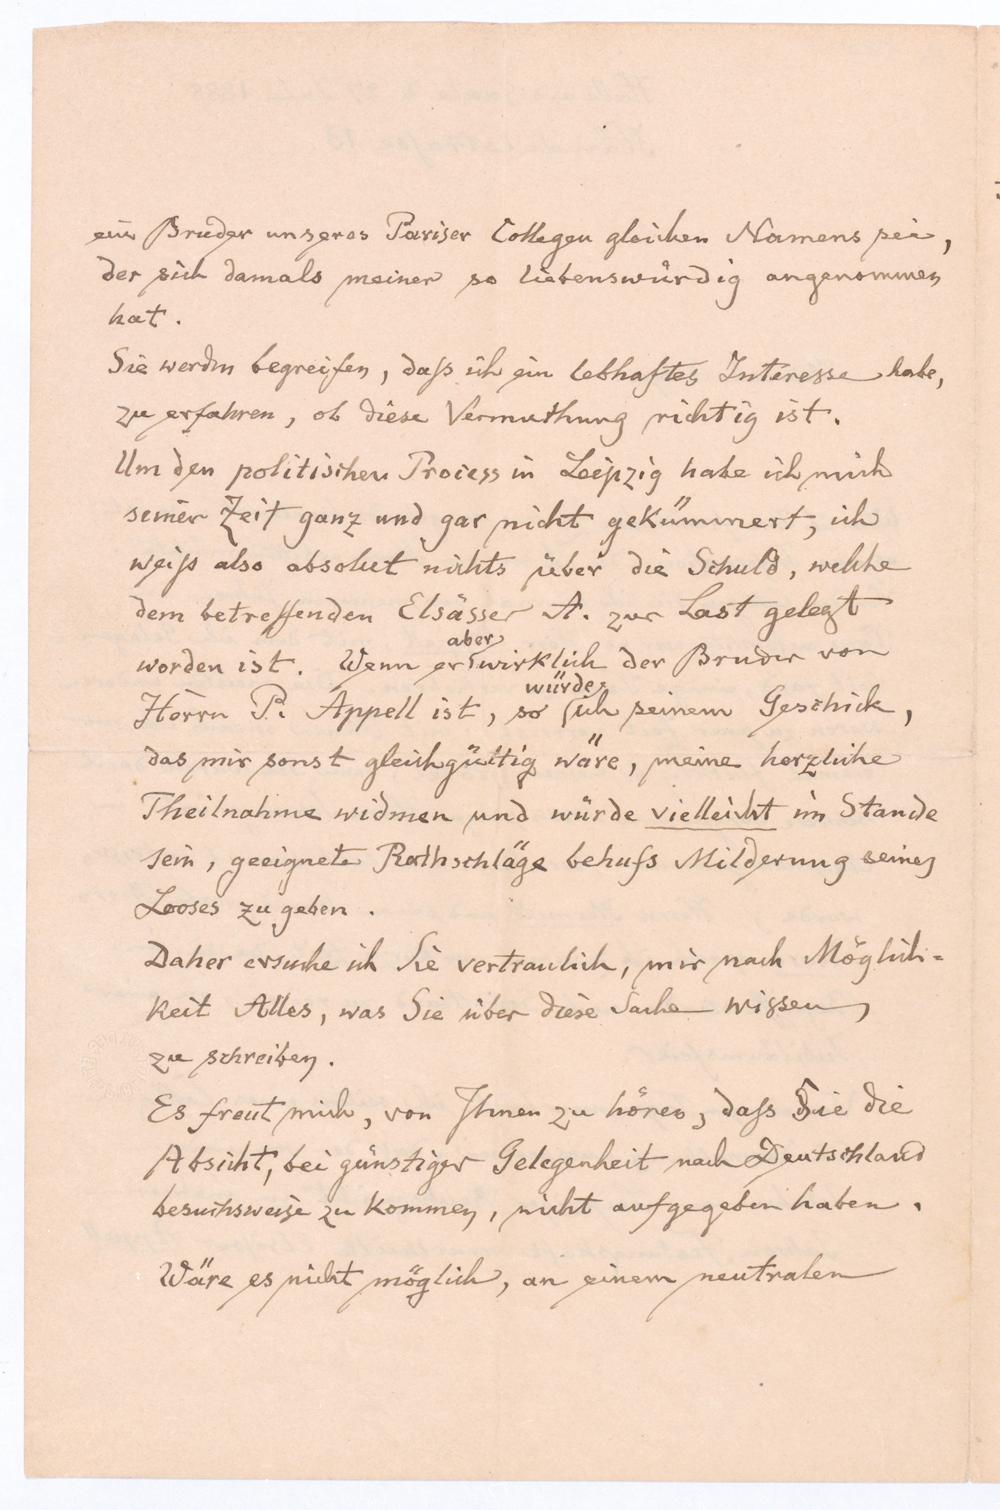 ein Bruder unseres Pariser Collegen gleichen Namens sei,
der sich damals meiner so liebenswürdig angenommen
hat.
Sie werden begreifen, daſs ich ein lebhaftes Interesse habe,
zu erfahren, ob diese Vermuthung richtig ist.
Um den politischen Process in Leipzig habe ich mich
seiner Zeit ganz und gar nicht gekümmert, ich
weiſs also absolut nichts über die Schuld, welche
dem betreffenden Elsässer A. zur Last gelegt
worden ist. Wenn er aber wirklich der Bruder von
Herrn P. Appell ist, so würde ich seinem Geschick,
das mir sonst gleichgültig wäre, meine herzliche
Theilnahme widmen und würde vielleicht im Stande
sein, geeignete Rathschläge behufs Milderung seines
Looses zu geben.
Daher ersuche ich Sie vertraulich, mir nach Möglich-
keit Alles, was Sie über diese Sache wissen,
zu schreiben.
Es freut mich, von Ihnen zu hören, daſs Sie die
Absicht, bei günstiger Gelegenheit nach Deutschland
besuchsweise zu kommen, nicht aufgegeben haben.
Wäre es nicht möglich, an einem neutralen